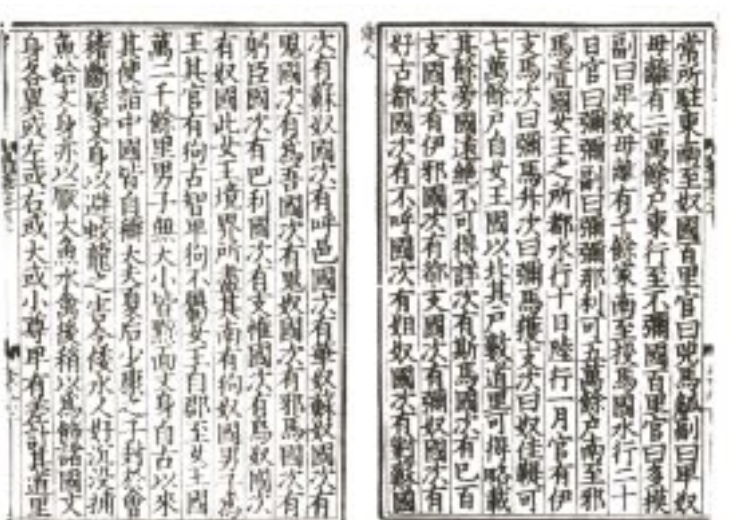 常所駐東南至奴國百里官曰兕馬觚副曰卑奴
母離有二萬餘戶東行至不彌國百里官曰多模
副曰卑奴母離有千餘家南至投馬國水行二十
日官曰彌彌副曰彌彌那利可五萬餘戶南至邪
馬壹國女王之所都水行十日陸行一月官有伊
支馬次曰彌馬升次曰彌馬獲支次曰奴佳鞮可
七萬餘戶自女王國以北其戶數道里可得略載
其餘旁國遠絕不可得詳次有斯馬國次有巳百
支國次有伊邪國次有都支國次有彌奴國次有
好古都國次有不呼國次有姐奴國次有對蘇國
次有蘇奴國次有呼邑國次有華奴蘇奴國次有
鬼國次有爲吾國次有鬼奴國次有邪馬國次有
躬臣國次有巴利國次有支惟國次有烏奴國次
有奴國此女王境界所盡其南有狗奴國男子爲
王其官有狗古智卑狗不屬女王自郡至女王國
萬二千餘里男子無大小皆黥面文身自古以來
其使詣中國皆自稱大夫夏后少康之子封於會
稽斷髮文身以避蛟龍之害今倭水人好沉没捕
魚蛤文身亦以厭大魚水禽後稍以爲飾諸國文
身各異或左或右或大或小尊卑有差計其道里